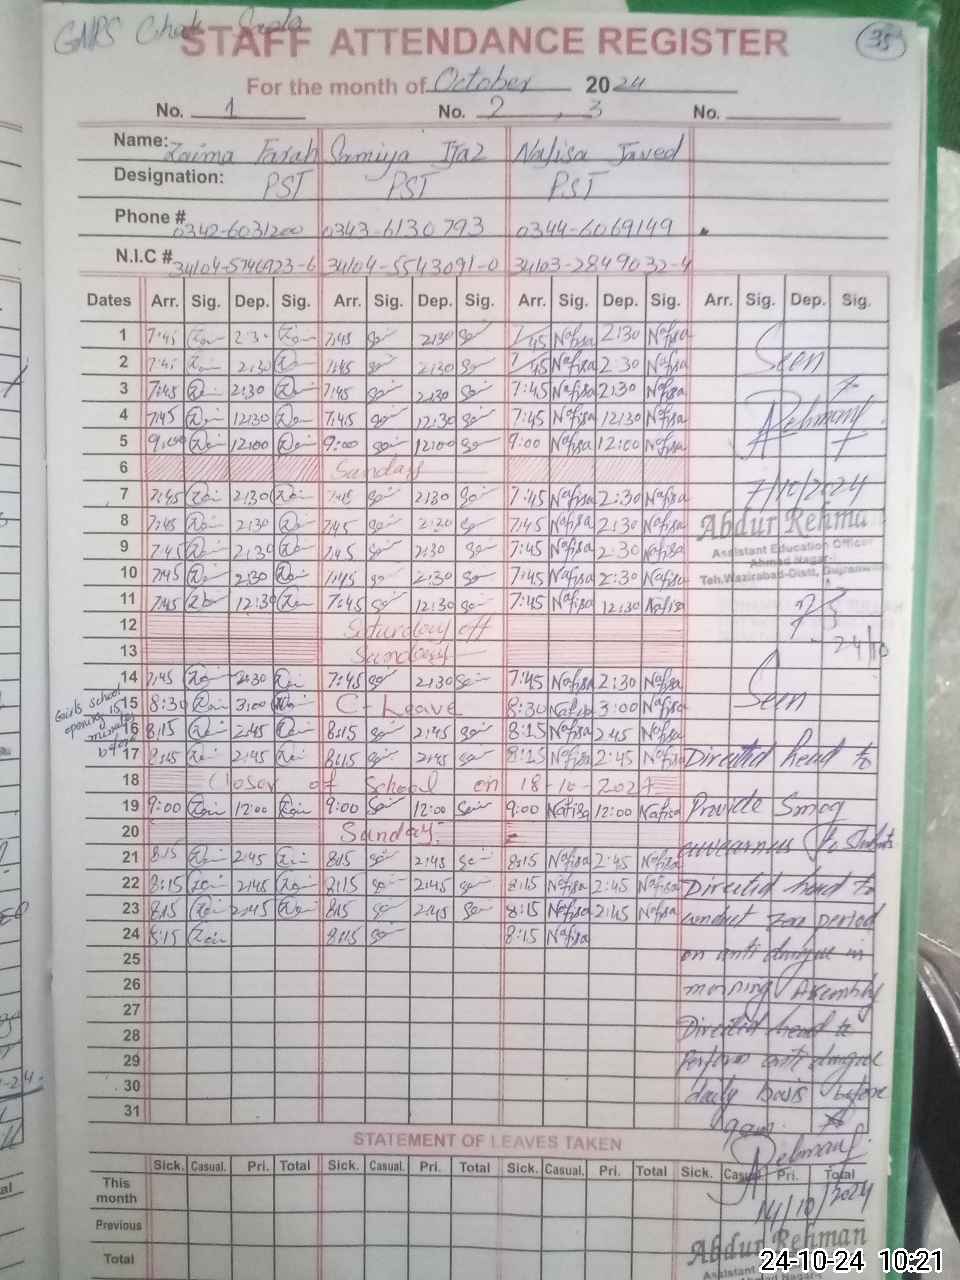 GMPS Chak
STAFF ATTENDANCE REGISTER 35
For the month of October 2024
No. 1 No. 2, 3 No.
Name: Zaima Farah Samiya Ijaz Nafisa Javed
Designation: PST PST PST
Phone # 0342-6031200 0343-6130793 0344-6069149
N.I.C # 34104-5746923-6 34104-5543091-0 34103-2849032-4
Dates Arr. Sig. Dep. Sig. Arr. Sig. Dep. Sig. Arr. Sig. Dep. Sig. Arr. Sig. Dep. Sig.
1 7:45 2:30 7:45 2:30 7:45 Nafisa 2:30 Nafisa
2 7:45 2:30 7:45 2:30 7:45 Nafisa 2:30 Nafisa Seen
3 7:45 2:30 7:45 2:30 7:45 Nafisa 2:30 Nafisa
4 7:45 12:30 7:45 12:30 7:45 Nafisa 12:30 Nafisa
5 9:00 12:00 9:00 12:00 9:00 Nafisa 12:00 Nafisa
6 Sunday
7 7:45 2:30 7:45 2:30 7:45 Nafisa 2:30 Nafisa 7/10/2024
8 7:45 2:30 7:45 2:20 7:45 Nafisa 2:30 Nafisa Abdur Rehman
9 7:45 2:30 7:45 2:30 7:45 Nafisa 2:30 Nafisa Assistant Education Officer
Ahmad Nagar
10 7:45 2:30 7:45 2:30 7:45 Nafisa 2:30 Nafisa Teh.Wazirabad-Distt,
11 7:45 12:30 7:45 12:30 7:45 Nafisa 12:30 Nafisa
12 Saturday off
13 Sunday 24/10
14 7:45 2:30 7:45 2:30 7:45 Nafisa 2:30 Nafisa
Girls school
opening 15
minutes
before
15 8:30 3:00 C-Leave 8:30 Nafisa 3:00 Nafisa Seen
16 8:15 2:45 8:15 2:45 8:15 Nafisa 2:45 Nafisa
17 8:15 2:45 8:15 2:45 8:15 Nafisa 2:45 Nafisa Directed head to
18 Closer of School on 18-10-2024
19 9:00 12:00 9:00 12:00 9:00 Nafisa 12:00 Nafisa Provide Smog
20 Sunday
awearness to Students
21 8:15 2:45 8:15 2:45 8:15 Nafisa 2:45 Nafisa
22 8:15 2:45 8:15 2:45 8:15 Nafisa 2:45 Nafisa Directed head to
23 8:15 2:45 8:15 2:45 8:15 Nafisa 2:45 Nafisa conduct zero period
24 8:15 8:15 8:15 Nafisa
25 on anti dangue in
26 morning Assembly
27
28 Directed head to
29 Perform anti dangue
30 daily basis before
31
9am.
STATEMENT OF LEAVES TAKEN
Sick. Casual. Pri. Total Sick. Casual. Pri. Total Sick. Casual. Pri. Total Sick. Casual. Pri. Total
This month
14/10/2024
Previous
Total Abdur Rehman
24-10-24 10:21